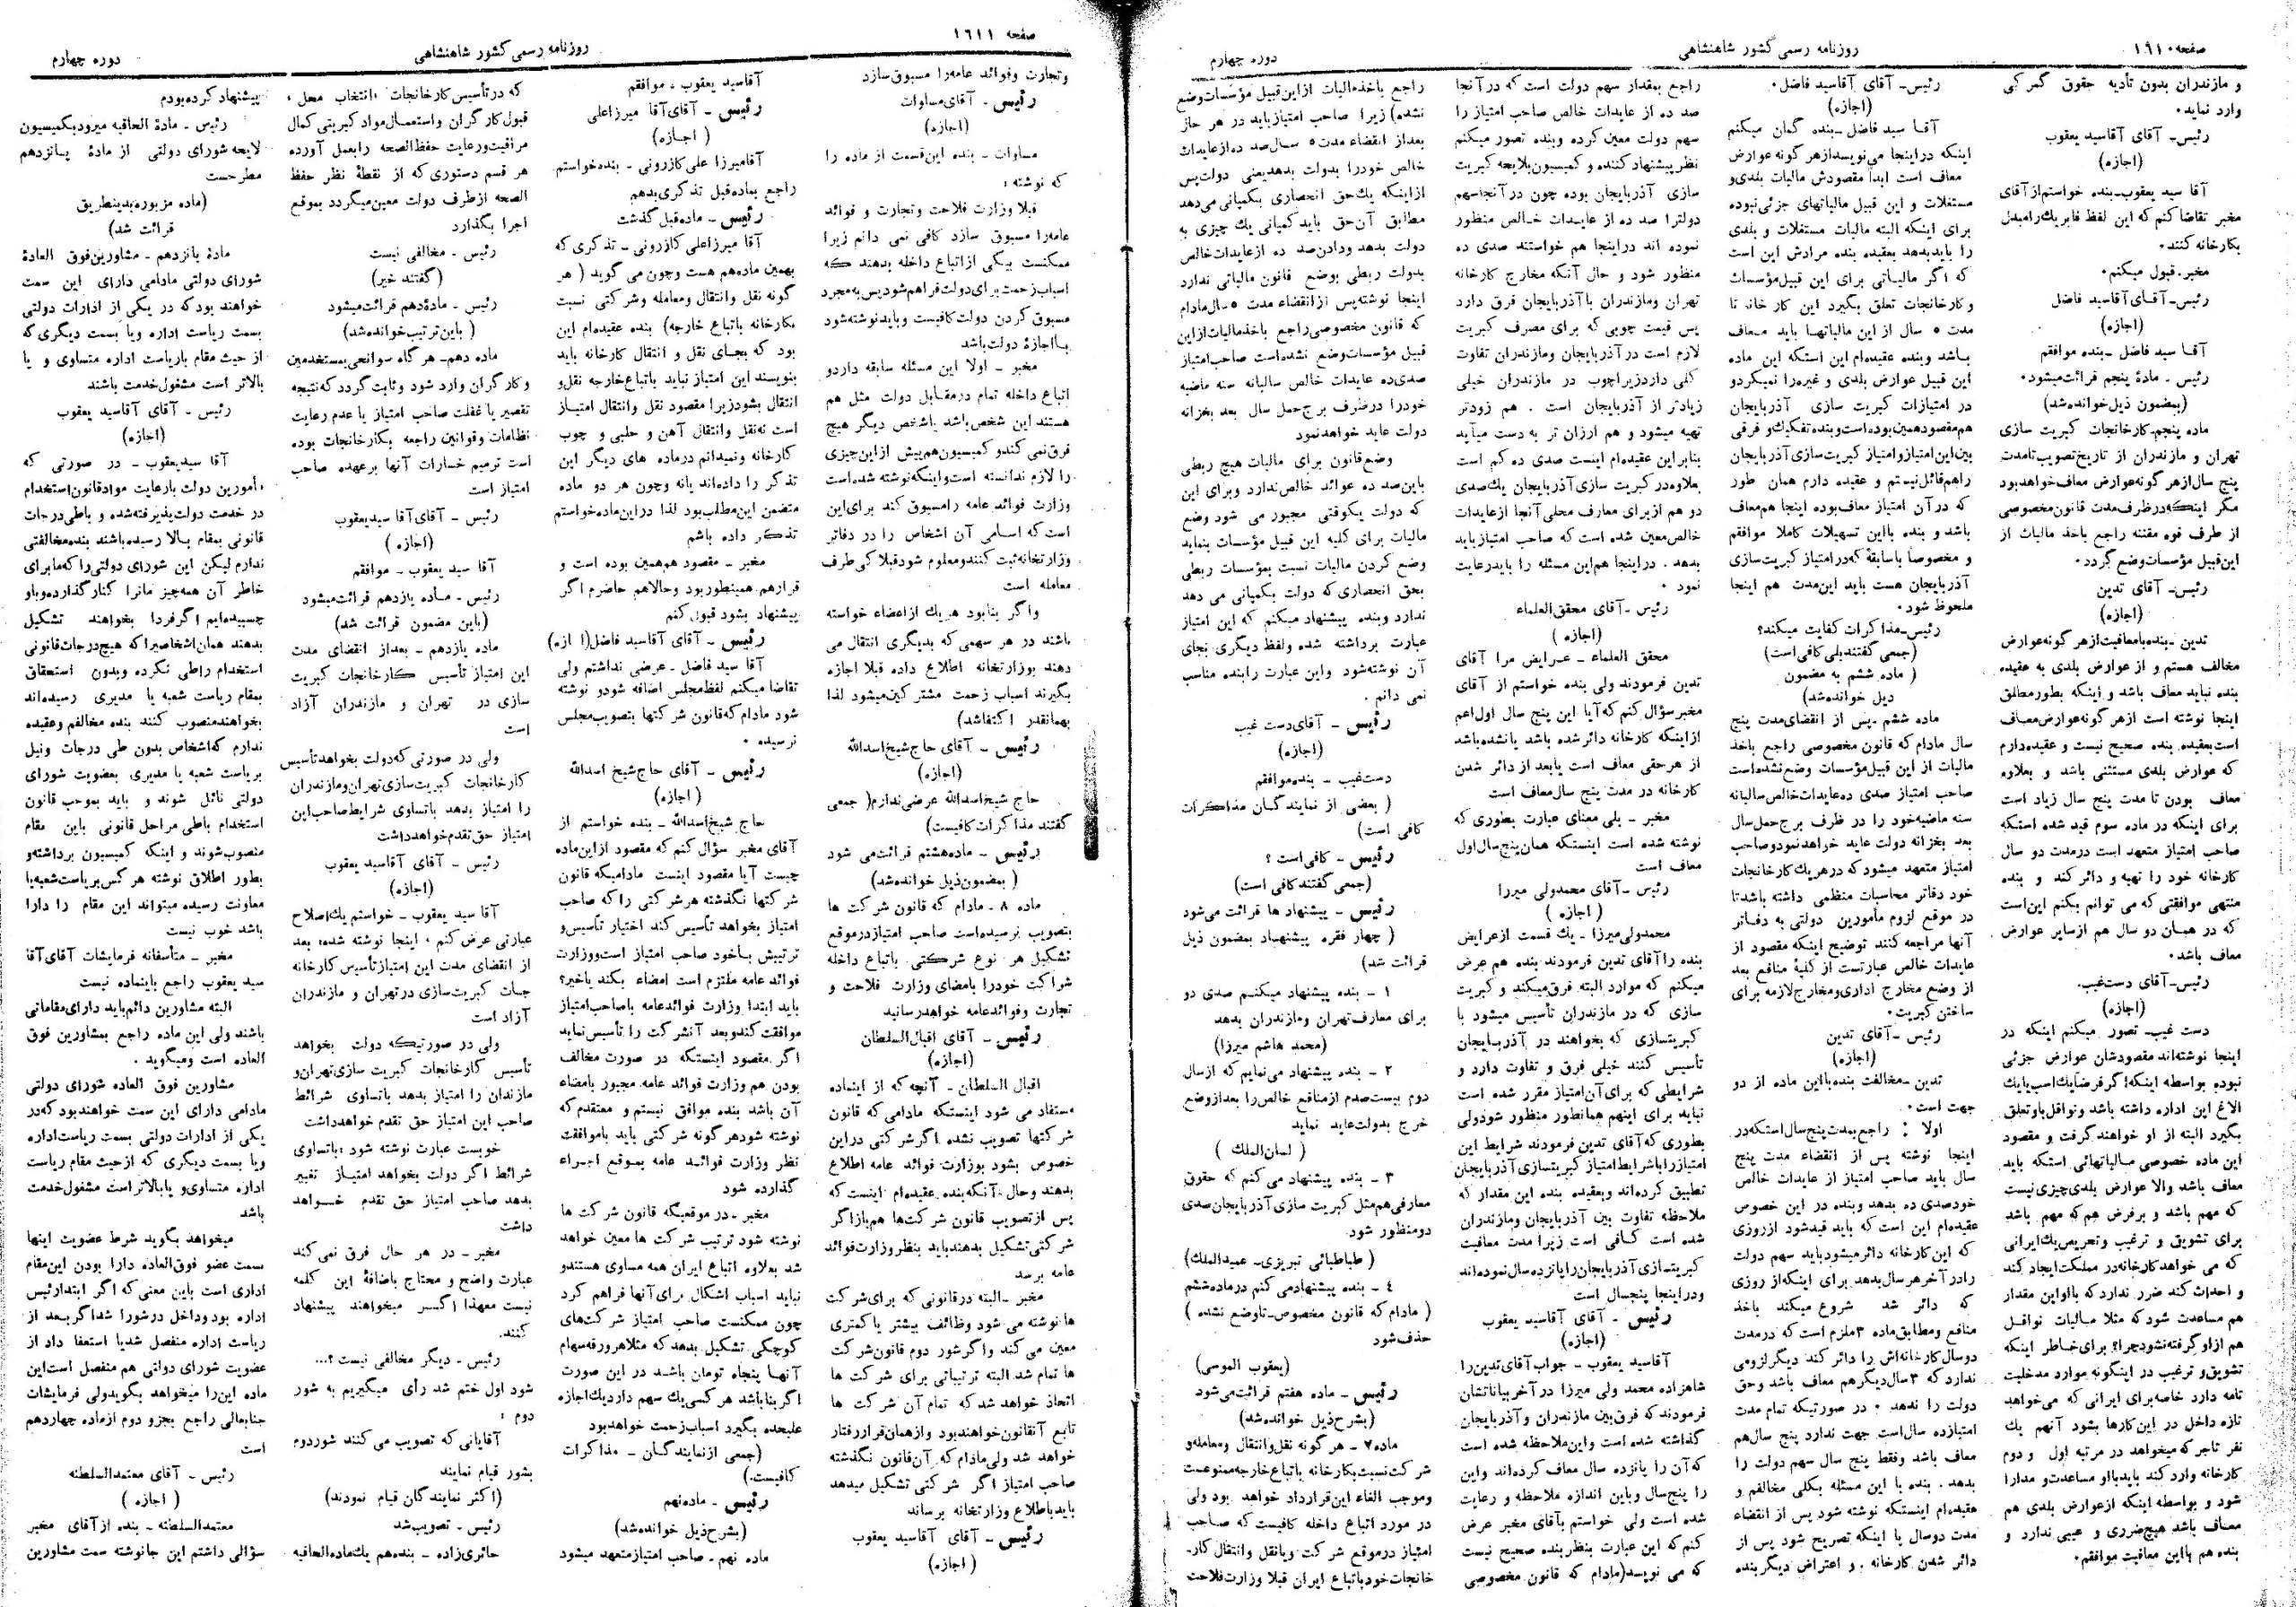 صفحه ۱۶۱۰
روزنامه رسمی کشور شاهنشاهی
دوره چهارم
و مازندران بدون تأدیه حقوق گمرکی
وارد نماید.
رئیس- آقای آقاسید یعقوب
(اجازه)
آقا سید یعقوب-بنده خواستم از آقای
مخبر تقاضا کنم که این لفظ فابریک را مبدل
بکارخانه کنند.
مخبر-قبول میکنم.
رئیس-آقای آقاسید فاضل
(اجازه)
آقا سید فاضل -بنده موافقم
رئیس - مادهٔ پنجم قرائت میشود.
(بمضمون ذیل خوانده شد)
ماده پنجم-کارخانجات کبریت سازی
تهران و مازندران از تاریخ تصویب تا مدت
پنج سال از هر گونه عوارض معاف خواهد بود
مگر اینکه در ظرف مدت قانون مخصوصی
از طرف قوه مقننه راجع باخذ مالیات از
این قبیل مؤسسات وضع گردد.
رئیس- آقای تدین
(اجازه)
تدین -بنده با معافیت از هر گونه عوارض
مخالف هستم و از عوارض بلدی به عقیده
بنده نباید معاف باشد و اینکه بطور مطلق
اینجا نوشته است از هر گونه عوارض معاف
است بعقیده بنده صحیح نیست و عقیده دارم
که عوارض بلدی مستثنی باشد و بعلاوه
معاف بودن تا مدت پنج سال زیاد است
برای اینکه در ماده سوم قید شده استکه
صاحب امتیاز متعهد است در مدت دو سال
کارخانه خود را تهیه و دائر کند و بنده
منتهی موافقتی که می توانم بکنم این است
که در همان دو سال هم از سایر عوارض
معاف باشد.
رئیس-آقای دست غیب.
(اجازه)
دست غیب- تصور میکنم اینکه در
اینجا نوشته اند مقصودشان عوارض جزئی
نبوده بواسطه اینکه اگر فرضا یک اسب یا یک
الاغ این اداره داشته باشد و نواقل باو تعلق
بگیرد البته از او خواهند گرفت و مقصود
این ماده خصوصی مالیاتهائی استکه باید
معاف باشد والا عوارض بلدی چیزی نیست
که مهم باشد و برفرض هم که مهم باشد
برای تشویق و ترغیب و تحریص یک ایرانی
که می خواهد کارخانه در مملکت ایجاد کند
و احداث کند ضرر ندارد که با او این مقدار
هم مساعدت شود که مثلا مالیات نواقل
هم از او گرفته نشود چرا؟ برای خاطر اینکه
تشویق و ترغیب در اینگونه موارد مدخلیت
تامه دارد خاصه برای ایرانی که می خواهد
تازه داخل در این کارها بشود آنهم یک
نفر تاجر که میخواهد در مرتبه اول و دوم
کارخانه وارد کند باید با او مساعدت و مدارا
شود و بواسطه اینکه از عوارض بلدی هم
معاف باشد هیچ ضرری و عیبی ندارد و
بنده هم با این معافیت موافقم.
رئیس- آقای آقاسید فاضل.
(اجازه)
آقا سید فاضل -بنده گمان میکنم
اینکه در اینجا می نویسد از هر گونه عوارض
معاف است ابداً مقصودش مالیات بلدی و
مستغلات و این قبیل مالیاتهای جزئی نبوده
برای اینکه البته مالیات مستغلات و بلدی
را باید بدهد بعقیده بنده مرادش این است
که اگر مالیاتی برای این قبیل مؤسسات
و کارخانجات تعلق بگیرد این کار خانه تا
مدت ۵ سال از این مالیاتها باید معاف
باشد و بنده عقیده ام این استکه این ماده
این قبیل عوارض بلدی و غیره را نمیگیرد و
در امتیازات کبریت سازی آذربایجان
هم مقصود همین بوده است و بنده تفکیک و فرقی
بین این امتیاز و امتیاز کبریت سازی آذربایجان
راهم قائل نیستم و عقیده دارم همان طور
که در آن امتیاز معاف بوده اینجا هم معاف
باشد و بنده با این تسهیلات کاملا موافقم
و مخصوصاً با سابقهٔ که در امتیاز کبریت سازی
آذربایجان هست باید این مدت هم اینجا
ملحوظ شود.
رئیس-مذاکرات کفایت میکند؟
(جمعی گفتند بلی کافی است)
( ماده ششم به مضمون
ذیل خوانده شد)
ماده ششم -پس از انقضای مدت پنج
سال مادام که قانون مخصوصی راجع باخذ
مالیات از این قبیل مؤسسات وضع نشده است
صاحب امتیاز صدی ده عایدات خالص سالیانه
سنه ماضیه خود را در ظرف برج حمل سال
بعد بخزانه دولت عاید خواهد نمود و صاحب
امتیاز متعهد میشود که در هر یک کارخانجات
خود دفاتر محاسبات منظمی داشته باشد تا
در موقع لزوم مأمورین دولتی به دفاتر
آنها مراجعه کنند توضیح اینکه مقصود از
عایدات خالص عبارتست از کلیهٔ منافع بعد
از وضع مخارج اداری و مخارج لازمه برای
ساختن کبریت.
رئیس- آقای تدین
(اجازه)
تدین -مخالفت بنده با این ماده از دو
جهت است.
اولا : راجع بمدت پنج سال استکه در
اینجا نوشته پس از انقضاء مدت پنج
سال باید صاحب امتیاز از عایدات خالص
خود صدی ده بدهد و بنده در این خصوص
عقیده ام این است که باید قید شود از روزی
که این کارخانه دائر میشود باید سهم دولت
را در آخر هر سال بدهد برای اینکه از روزی
که دائر شد شروع میکند باخذ
منافع و مطابق ماده ۳ ملزم است که در مدت
دو سال کارخانه اش را دائر کند دیگر لزومی
ندارد که ۳ سال دیگر هم معاف باشد و حق
دولت را ندهد . در صورتیکه تمام مدت
امتیاز ده سال است جهت ندارد پنج سال هم
معاف باشد و فقط پنج سال سهم دولت را
بدهد . بنده با این مسئله بکلی مخالفم و
عقیده ام اینستکه نوشته شود پس از انقضاء
مدت دو سال یا اینکه تصریح شود پس از
دائر شدن کارخانه . و اعتراض دیگر بنده
راجع بمقدار سهم دولت است که در آنجا
صد ده از عایدات خالص صاحب امتیاز را
سهم دولت معین کرده و بنده تصور میکنم
نظر پیشنهاد کننده و کمیسیون بلایحه کبریت
سازی آذربایجان بوده چون در آنجا سهم
دولت را صد ده از عایدات خالص منظور
نموده اند در اینجا هم خواستند صدی ده
منظور شود و حال آنکه مخارج کارخانه
تهران و مازندران با آذربایجان فرق دارد
پس قیمت چوبی که برای مصرف کبریت
لازم است در آذربایجان و مازندران تفاوت
کلی دارد زیرا چوب در مازندران خیلی
زیادتر از آذربایجان است . هم زودتر
تهیه میشود و هم ارزان تر به دست میآید
بنابراین عقیده ام اینست صدی ده کم است
بعلاوه در کبریت سازی آذربایجان یک صدی
دو هم از برای معارف محلی آنجا از عایدات
خالص معین شده است که صاحب امتیاز باید
بدهد . در اینجا هم این مسئله را باید رعایت
نمود .
رئیس -آقای محقق العلماء
(اجازه )
محقق العلماء - عرایض مرا آقای
تدین فرمودند ولی بنده خواستم از آقای
مخبر سؤال کنم که آیا این پنج سال اول اعم
از اینکه کارخانه دائر شده باشد یا نشده باشد
از هر حقی معاف است یا بعد از دائر شدن
کارخانه در مدت پنج سال معاف است
مخبر - بلی معنای عبارت بطوری که
نوشته شده است اینستکه همان پنج سال اول
معاف است
رئیس -آقای محمدولی میرزا
( اجازه )
محمدولی میرزا - یک قسمت از عرایض
بنده را آقای تدین فرمودند بنده هم عرض
میکنم که موارد البته فرق میکند و کبریت
سازی که در مازندران تأسیس میشود با
کبریتسازی که بخواهند در آذربایجان
تأسیس کنند خیلی فرق و تفاوت دارد و
شرایطی که برای آن امتیاز مقرر شده است
نباید برای اینهم همانطور منظور شود ولی
بطوری که آقای تدین فرمودند شرایط این
امتیاز را با شرایط امتیاز کبریتسازی آذربایجان
تطبیق کرده اند و بعقیده بنده این مقدار که
ملاحظه تفاوت بین آذربایجان و مازندران
شده است کافی است زیرا مدت معافیت
کبریتسازی آذربایجان را پانزده سال نموده اند
و در اینجا پنجسال است
رئیس - آقای آقاسید یعقوب
(اجازه)
آقاسید یعقوب - جواب آقای تدین را
شاهزاده محمد ولی میرزا در آخر بیاناتشان
فرمودند که فرق بین مازندران و آذربایجان
گذاشته شده است و این ملاحظه شده است
که آن را پانزده سال معاف کرده اند و این
را پنج سال و باین اندازه ملاحظه و رعایت
شده است ولی خواستم بآقای مخبر عرض
کنم که این عبارت بنظر بنده صحیح نیست
که می نویسد(مادام که قانون مخصوصی
راجع باخذ مالیات از این قبیل مؤسسات وضع
نشده) زیرا صاحب امتیاز باید در هر حال
بعد از انقضاء مدت ۵ سال صد ده از عایدات
خالص خود را بدولت بدهد یعنی دولت پس
از اینکه یک حق انحصاری بکمپانی می دهد
مطابق آن حق باید کمپانی یک چیزی به
دولت بدهد و دادن صد ده از عایدات خالص
بدولت ربطی بوضع قانون مالیاتی ندارد
اینجا نوشته پس از انقضاء مدت ۵ سال مادام
که قانون مخصوصی راجع باخذ مالیات از این
قبیل مؤسسات وضع نشده است صاحب امتیاز
صدی ده عایدات خالص سالیانه سنه ماضیه
خود را در ظرف برج حمل سال بعد بخزانه
دولت عاید خواهد نمود
وضع قانون برای مالیات هیچ ربطی
باین صد ده عوائد خالص ندارد و برای این
که دولت یکوقتی مجبور می شود وضع
مالیات برای کلیه این قبیل مؤسسات بنماید
وضع کردن مالیات نسبت بمؤسسات ربطی
بحق انحصاری که دولت بکمپانی می دهد
ندارد و بنده پیشنهاد میکنم که این امتیاز
عبارت برداشته شده و لفظ دیگری بجای
آن نوشته شود و این عبارت را بنده مناسب
نمی دانم .
رئیس - آقای دست غیب
(اجازه)
دست غیب - بنده موافقم
( بعضی از نمایندگان مذاکرات
کافی است)
رئیس - کافی است ؟
(جمعی گفتند کافی است)
رئیس - پیشنهاد ها قرائت می شود
( چهار فقره پیشنهاد بمضمون ذیل
قرائت شد)
۱ - بنده پیشنهاد میکنم صدی دو
برای معارف تهران و مازندران بدهد
(محمد هاشم میرزا)
۲ - بنده پیشنهاد می نمایم که از سال
دوم بیست صدم از منافع خالص را بعد از وضع
خرج بدولت عاید نماید
( لسان الملک )
۳ - بنده پیشنهاد می کنم که حقوق
معارفی هم مثل کبریت سازی آذربایجان صدی
دو منظور شود
( طباطبائی تبریزی- عمید الملک)
٤ - بنده پیشنهاد می کنم در ماده ششم
( مادام که قانون مخصوص-تا وضع نشده )
حذف شود
(یعقوب الموسی)
رئیس - ماده هفتم قرائت می شود
(بشرح ذیل خوانده شد)
ماده ۷ - هر گونه نقل و انتقال و معامله و
شرکت نسبت بکارخانه باتباع خارجه ممنوعست
و موجب الغاء این قرارداد خواهد بود ولی
در مورد اتباع داخله کافیست که صاحب
امتیاز در موقع شرکت و یا نقل و انتقال کار-
خانجات خود باتباع ایران قبلا وزارت فلاحت
صفحه ۱۶۱۱
روزنامه رسمی کشور شاهنشاهی
دوره چهارم
و تجارت و فوائد عامه را مسبوق سازد
رئیس - آقای مساوات
(اجازه)
مساوات - بنده این قسمت از ماده را
که نوشته :
قبلا وزارت فلاحت و تجارت و فوائد
عامه را مسبوق سازد کافی نمی دانم زیرا
ممکنست بیکی از اتباع داخله بدهند که
اسباب زحمت برای دولت فراهم شود پس به مجرد
مسبوق کردن دولت کافیست و باید نوشته شود
با اجازهٔ دولت باشد
مخبر - اولا این مسئله سابقه دارد و
اتباع داخله تمام در مقابل دولت مثل هم
هستند این شخص باشد یا شخص دیگر هیچ
فرق نمی کند و کمیسیون هم بیش از این چیزی
را لازم ندانسته است و اینکه نوشته شده است
وزارت فوائد عامه را مسبوق کند برای این
است که اسامی آن اشخاص را در دفاتر
وزارتخانه ثبت کنند و معلوم شود قبلا کی طرف
معامله است
و اگر بنا بود هر یک از اعضاء خواسته
باشند در هر سهمی که بدیگری انتقال می
دهند بوزارتخانه اطلاع داده قبلا اجازه
بگیرند اسباب زحمت مشترکین میشود لذا
بهمانقدر اکتفا شد)
رئیس - آقای حاج شیخ اسدالله
(اجازه)
حاج شیخ اسدالله عرضی ندارم( جمعی
گفتند مذاکرات کافیست)
رئیس - ماده هشتم قرائت می شود
( بمضمون ذیل خوانده شد)
ماده ۸ - مادام که قانون شرکت ها
بتصویب نرسیده است صاحب امتیاز در موقع
تشکیل هر نوع شرکتی باتباع داخله
شراکت خود را بامضای وزارت فلاحت و
تجارت و فوائد عامه خواهد رسانید
رئیس - آقای اقبال السلطان
(اجازه)
اقبال السلطان - آنچه که از اینماده
مستفاد می شود اینستکه مادامی که قانون
شرکتها تصویب نشده اگر شرکتی در این
خصوص بشود بوزارت فوائد عامه اطلاع
بدهند و حال آنکه بنده عقیده ام اینست که
پس از تصویب قانون شرکت ها هم باز اگر
شرکتی تشکیل بدهند باید بنظر وزارت فوائد
عامه برسد
مخبر -البته در قانونی که برای شرکت
ها نوشته می شود وظائف بیشتر یا کمتری
معین می کند و اگر شور دوم قانون شرکت
ها تمام شد البته ترتیباتی برای شرکت ها
اتخاذ خواهد شد که تمام آن شرکت ها
تابع آنقانون خواهند بود و از همان قرار رفتار
خواهد شد ولی مادام که آن قانون نگذشته
صاحب امتیاز اگر شرکتی تشکیل میدهد
باید باطلاع وزارتخانه برساند
رئیس - آقای آقاسید یعقوب
( اجازه)
آقاسید یعقوب - موافقم
رئیس - آقای آقا میرزاعلی
( اجازه)
آقامیرزا علی کازرونی - بنده خواستم
راجع بماده قبل تذکری بدهم
رئیس - ماده قبل گذشت
آقا میرزاعلی کازرونی - تذکری که
بهمین ماده هم هست و چون می گوید ( هر
گونه نقل و انتقال و معامله و شرکتی نسبت
بکارخانه باتباع خارجه) بنده عقیده ام این
بود که بجای نقل و انتقال کارخانه باید
بنویسند این امتیاز نباید باتباع خارجه نقل و
انتقال بشود زیرا مقصود نقل و انتقال امتیاز
است نه نقل و انتقال آهن و حلبی و چوب
کارخانه و نمیدانم در ماده های دیگر این
تذکر را داده اند یا نه و چون هر دو ماده
متضمن این مطلب بود لذا در این ماده خواستم
تذکر داده باشم
مخبر - مقصود هم همین بوده است و
قرار هم همینطور بود و حالا هم حاضرم اگر
پیشنهاد بشود قبول کنم
رئیس - آقای آقاسید فاضل(ا ازه)
آقا سید فاضل - عرضی نداشتم ولی
تقاضا میکنم لفظ مجلس اضافه شود و نوشته
شود مادام که قانون شرکتها بتصویب مجلس
نرسیده .
رئیس - آقای حاج شیخ اسدالله
( اجازه)
حاج شیخ اسدالله - بنده خواستم از
آقای مخبر سؤال کنم که مقصود از این ماده
چیست آیا مقصود اینست مادامیکه قانون
شرکتها نگذشته هر شرکتی را که صاحب
امتیاز بخواهد تأسیس کند اختیار تأسیس و
ترتیبش با خود صاحب امتیاز است و وزارت
فوائد عامه ملتزم است امضاء بکند یا خیر؟
باید ابتدا وزارت فوائد عامه با صاحب امتیاز
موافقت کند و بعد آنشرکت را تأسیس نماید
اگر مقصود اینستکه در صورت مخالف
بودن هم وزارت فوائد عامه مجبور بامضاء
آن باشد بنده موافق نیستم و معتقدم که
نوشته شود هر گونه شرکتی باید با موافقت
نظر وزارت فوائد عامه بموقع اجراء
گذارده شود
مخبر -در موقعیکه قانون شرکت ها
نوشته شود ترتیب شرکت ها معین خواهد
شد بعلاوه اتباع ایران همه مساوی هستند و
نباید اسباب اشکال برای آنها فراهم کرد
چون ممکنست صاحب امتیاز شرکت های
کوچکی تشکیل بدهد که مثلا هر ورقه سهام
آنها پنجاه تومان باشد در این صورت
اگر بنا باشد هر کسی یک سهم دارد یک اجازه
علیحده بگیرد اسباب زحمت خواهد بود
(جمعی از نمایندگان - مذاکرات
کافیست.)
رئیس - ماده نهم
(بشرح ذیل خوانده شد)
ماده نهم - صاحب امتیاز متعهد میشود
که در تأسیس کارخانجات ،انتخاب محل ،
قبول کارگران و استعمال مواد کبریتی کمال
مراقبت و رعایت حفظ الصحه را بعمل آورده
هر قسم دستوری که از نقطهٔ نظر حفظ
الصحه از طرف دولت معین میگردد بموقع
اجرا بگذارد
رئیس - مخالفی نیست
(گفتند خیر)
رئیس - مادهٔ دهم قرائت میشود
( باین ترتیب خوانده شد)
ماده دهم- هر گاه سوانحی بمستخدمین
و کارگران وارد شود و ثابت گردد که نتیجه
تقصیر یا غفلت صاحب امتیاز یا عدم رعایت
نظامات و قوانین راجعه بکارخانجات بوده
است ترمیم خسارات آنها بر عهده صاحب
امتیاز است
رئیس - آقای آقا سید یعقوب
(اجازه )
آقا سید یعقوب - موافقم
رئیس - ماده یازدهم قرائت میشود
(باین مضمون قرائت شد)
ماده یازدهم - بعد از انقضای مدت
این امتیاز تأسیس کارخانجات کبریت
سازی در تهران و مازندران آزاد
است
ولی در صورتی که دولت بخواهد تأسیس
کارخانجات کبریت سازی تهران و مازندران
را امتیاز بدهد با تساوی شرایط صاحب این
امتیاز حق تقدم خواهد داشت
رئیس - آقای آقاسید یعقوب
(اجازه)
آقا سید یعقوب - خواستم یک اصلاح
عبارتی عرض کنم . اینجا نوشته شده: بعد
از انقضای مدت این امتیاز تأسیس کارخانه
جات کبریت سازی در تهران و مازندران
آزاد است
ولی در صورتیکه دولت بخواهد
تأسیس کارخانجات کبریت سازی تهران و
مازندان را امتیاز بدهد با تساوی شرائط
صاحب این امتیاز حق تقدم خواهد داشت
خوبست عبارت نوشته شود :با تساوی
شرائط اگر دولت بخواهد امتیاز تغییر
بدهد صاحب امتیاز حق تقدم خواهد
داشت
مخبر - در هر حال فرق نمی کند
عبارت واضح و محتاج باضافهٔ این کلمه
نیست معهذا اگر میخواهند پیشنهاد
کنند.
رئیس - دیگر مخالفی نیست ؟...
شور اول ختم شد رأی میگیریم به شور
دوم :
آقایانی که تصویب می کنند شور دوم
بشور قیام نمایند
(اکثر نمایندگان قیام نمودند)
رئیس - تصویب شد
حائری زاده - بنده هم یک ماده الحاقیه
پیشنهاد کرده بودم
رئیس - مادهٔ الحاقیه میرود بکمیسیون
لایحه شورای دولتی از مادهٔ پانزدهم
مطرحست
(ماده مزبوره بدینطریق
قرائت شد)
مادهٔ پانزدهم - مشاورین فوق العادهٔ
شورای دولتی مادامی دارای این سمت
خواهند بود که در یکی از ادارات دولتی
بسمت ریاست اداره و یا بسمت دیگری که
از حیث مقام با ریاست اداره متساوی و یا
بالاتر است مشغول خدمت باشند
رئیس - آقای آقاسید یعقوب
(اجازه)
آقا سید یعقوب - در صورتی که
مأمورین دولت با رعایت مواد قانون استخدام
در خدمت دولت پذیرفته شده و با طی درجات
قانونی بمقام بالا رسیده باشند بنده مخالفتی
ندارم لیکن این شورای دولتی را که ما برای
خاطر آن همه چیز مانرا کنار گذارده و باو
چسبیده ایم اگر فردا بخواهند تشکیل
بدهند همان اشخاصیرا که هیچ درجات قانونی
استخدام را طی نکرده و بدون استحقاق
بمقام ریاست شعبه یا مدیری رسیده اند
بخواهند منصوب کنند بنده مخالفم و عقیده
ندارم که اشخاص بدون طی درجات و نیل
بریاست شعبه یا مدیری بعضویت شورای
دولتی نائل شوند و باید بموجب قانون
استخدام با طی مراحل قانونی باین مقام
منصوب شوند و اینکه کمیسیون برداشته و
بطور اطلاق نوشته هر کس بریاست شعبه یا
معاونت رسیده میتواند این مقام را دارا
باشد خوب نیست
مخبر - متأسفانه فرمایشات آقای آقا
سید یعقوب راجع باینماده نیست
البته مشاورین دائم باید دارای مقاماتی
باشند ولی این ماده راجع بمشاورین فوق
العاده است و میگوید .
مشاورین فوق العاده شورای دولتی
مادامی دارای این سمت خواهند بود که در
یکی از ادارات دولتی بسمت ریاست اداره
و یا بسمت دیگری که از حیث مقام ریاست
اداره متساوی و یا بالاتر است مشغول خدمت
باشد
میخواهد بگوید شرط عضویت اینها
سمت عضو فوق العاده دارا بودن این مقام
اداری است باین معنی که اگر ابتدا رئیس
اداره بود و داخل در شورا شد اگر بعد از
ریاست اداره منفصل شد یا استعفا داد از
عضویت شورای دولتی هم منفصل است این
ماده این را میخواهد بگوید ولی فرمایشات
جنابعالی راجع بجزو دوم از ماده چهاردهم
است
رئیس - آقای معتمد السلطنه
( اجازه )
معتمد السلطنه - بنده از آقای مخبر
سؤالی داشتم این جا نوشته سمت مشاورین